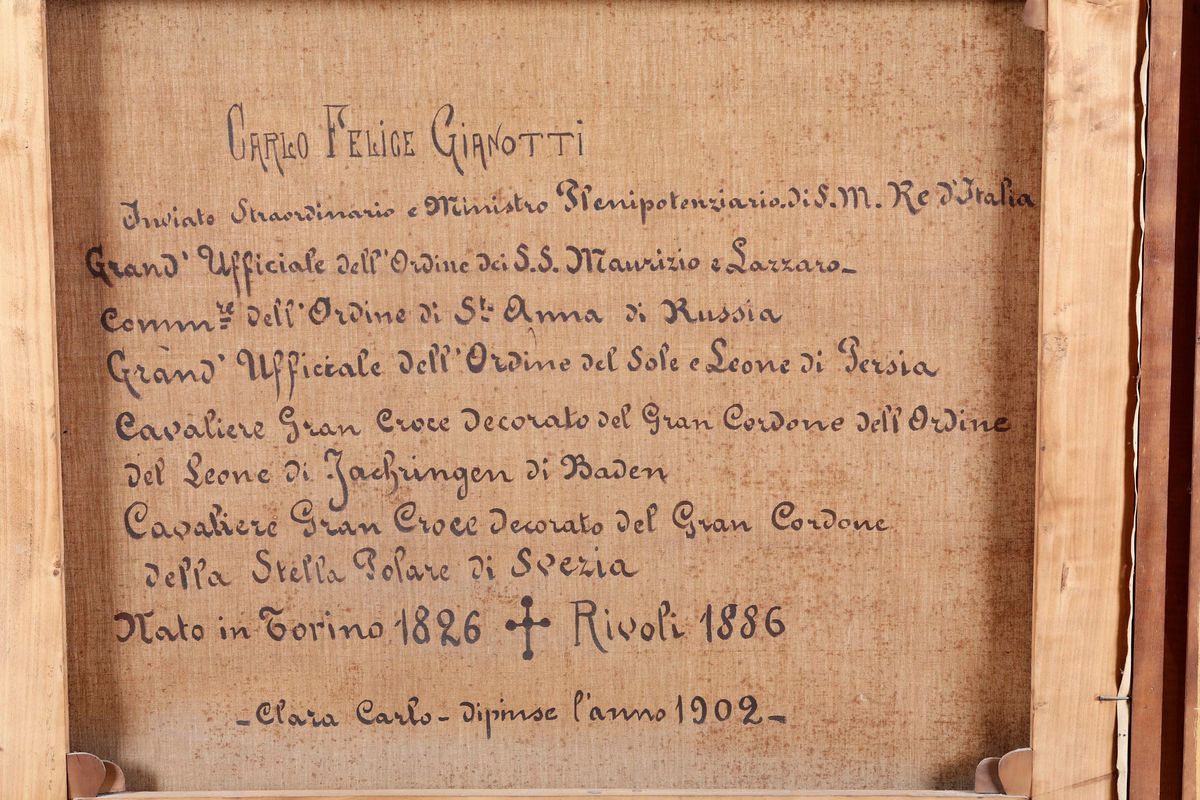 CARLO FELICE GIANOTTI
Inviato Straordinario e Ministro Plenipotenziario di S. M. Re d'Italia
Grand' Ufficiale dell'Ordine dei S. S. Maurizio e Lazzaro-
Comm.re dell'Ordine di St. Anna di Russia
Grand' Ufficiale dell'Ordine del Sole e Leone di Persia
Cavaliere Gran Croce decorato del Gran Cordone dell Ordine
del Leone di Zachringen di Baden
Cavaliere Gran Croce decorato del Gran Cordone
della Stella Polare di Svezia
Nato in Torino 1826 ✝ Rivoli 1886
- Clara Carlo - dipinse l'anno 1902 -